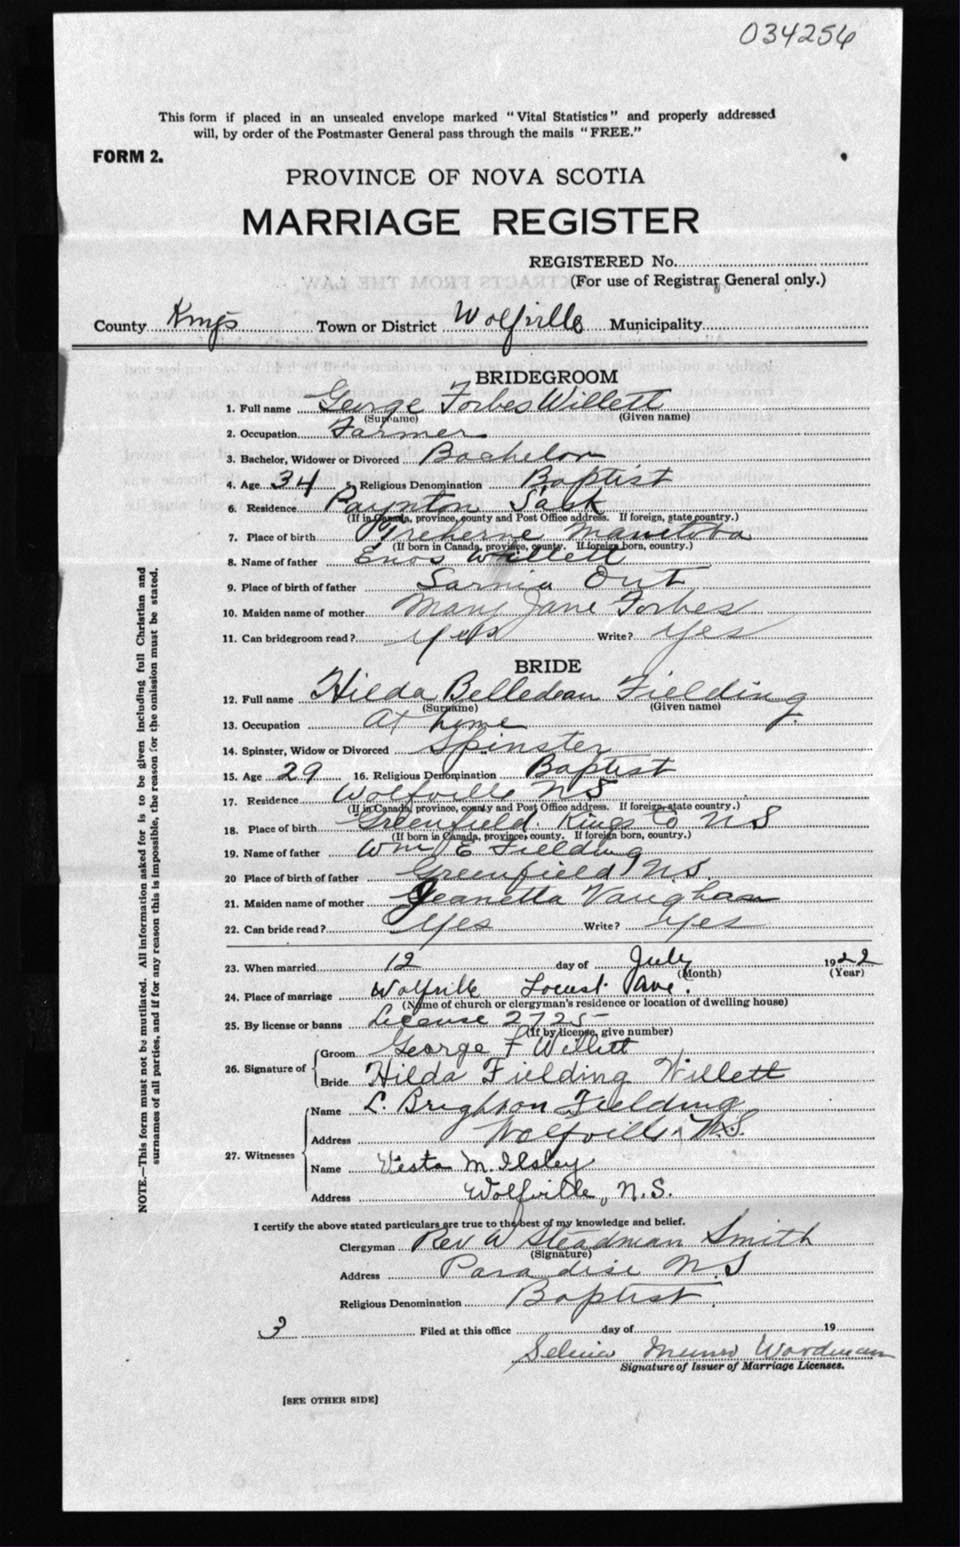 034256
This form if placed in an unsealed envelope marked "Vital Statistics" and properly addressed
will, by order of the Postmaster General pass through the mails "FREE."
FORM 2.
PROVINCE OF NOVA SCOTIA
MARRIAGE REGISTER
REGISTERED No.
(For use of Registrar General only.)
County Kings Town or District Wolfville Municipality
BRIDEGROOM
1. Full name George Forbes Willett
(Surname) (Given name)
2. Occupation Farmer
3. Bachelor, Widower or Divorced Bachelor
4. Age 34 5. Religious Denomination Baptist
6. Residence Paynton Sask
(If in Canada, province, county and Post Office address. If foreign, state country.)
7. Place of birth Treherne Manitoba
(If born in Canada, province, county. If foreign born, country.)
8. Name of father Enos Willett
9. Place of birth of father Sarnia Ont
10. Maiden name of mother Mary Jane Forbes
11. Can bridegroom read? Yes Write? Yes
BRIDE
12. Full name Hilda Belledean Fielding
(Surname) (Given name)
13. Occupation At home
14. Spinster, Widow or Divorced Spinster
15. Age 29 16. Religious Denomination Baptist
17. Residence Wolfville NS
(If in Canada, province, county and Post Office address. If foreign, state country.)
18. Place of birth Greenfield Kings Co NS
(If born in Canada, province, county. If foreign born, country.)
19. Name of father Wm E Fielding
20 Place of birth of father Greenfield NS.
21. Maiden name of mother Jeanetta Vaughan
22. Can bride read? Yes Write? Yes
23. When married 12 day of July 1922
(Month) (Year)
24. Place of marriage Wolfville Locust Ave.
(Name of church or clergyman's residence or location of dwelling house)
25. By license or banns License 2725
(If by license, give number)
26. Signature of Groom George F Willett
Bride Hilda Fielding Willett
27. Witnesses Name L. Brighton Fielding
Address Wolfville, N.S.
Name Vesta M. Ilsley
Address Wolfville, N.S.
I certify the above stated particulars are true to the best of my knowledge and belief.
Clergyman Rev A Steadman Smith
(Signature)
Address Paradise N.S
Religious Denomination Baptist.
3 Filed at this office day of 19
Munro Woodman
Signature of Issuer of Marriage Licenses.
[SEE OTHER SIDE]
NOTE.—This form must not be mutilated. All information asked for is to be given including full Christian and
surnames of all parties, and if for any reason this is impossible, the reason for the omission must be stated.